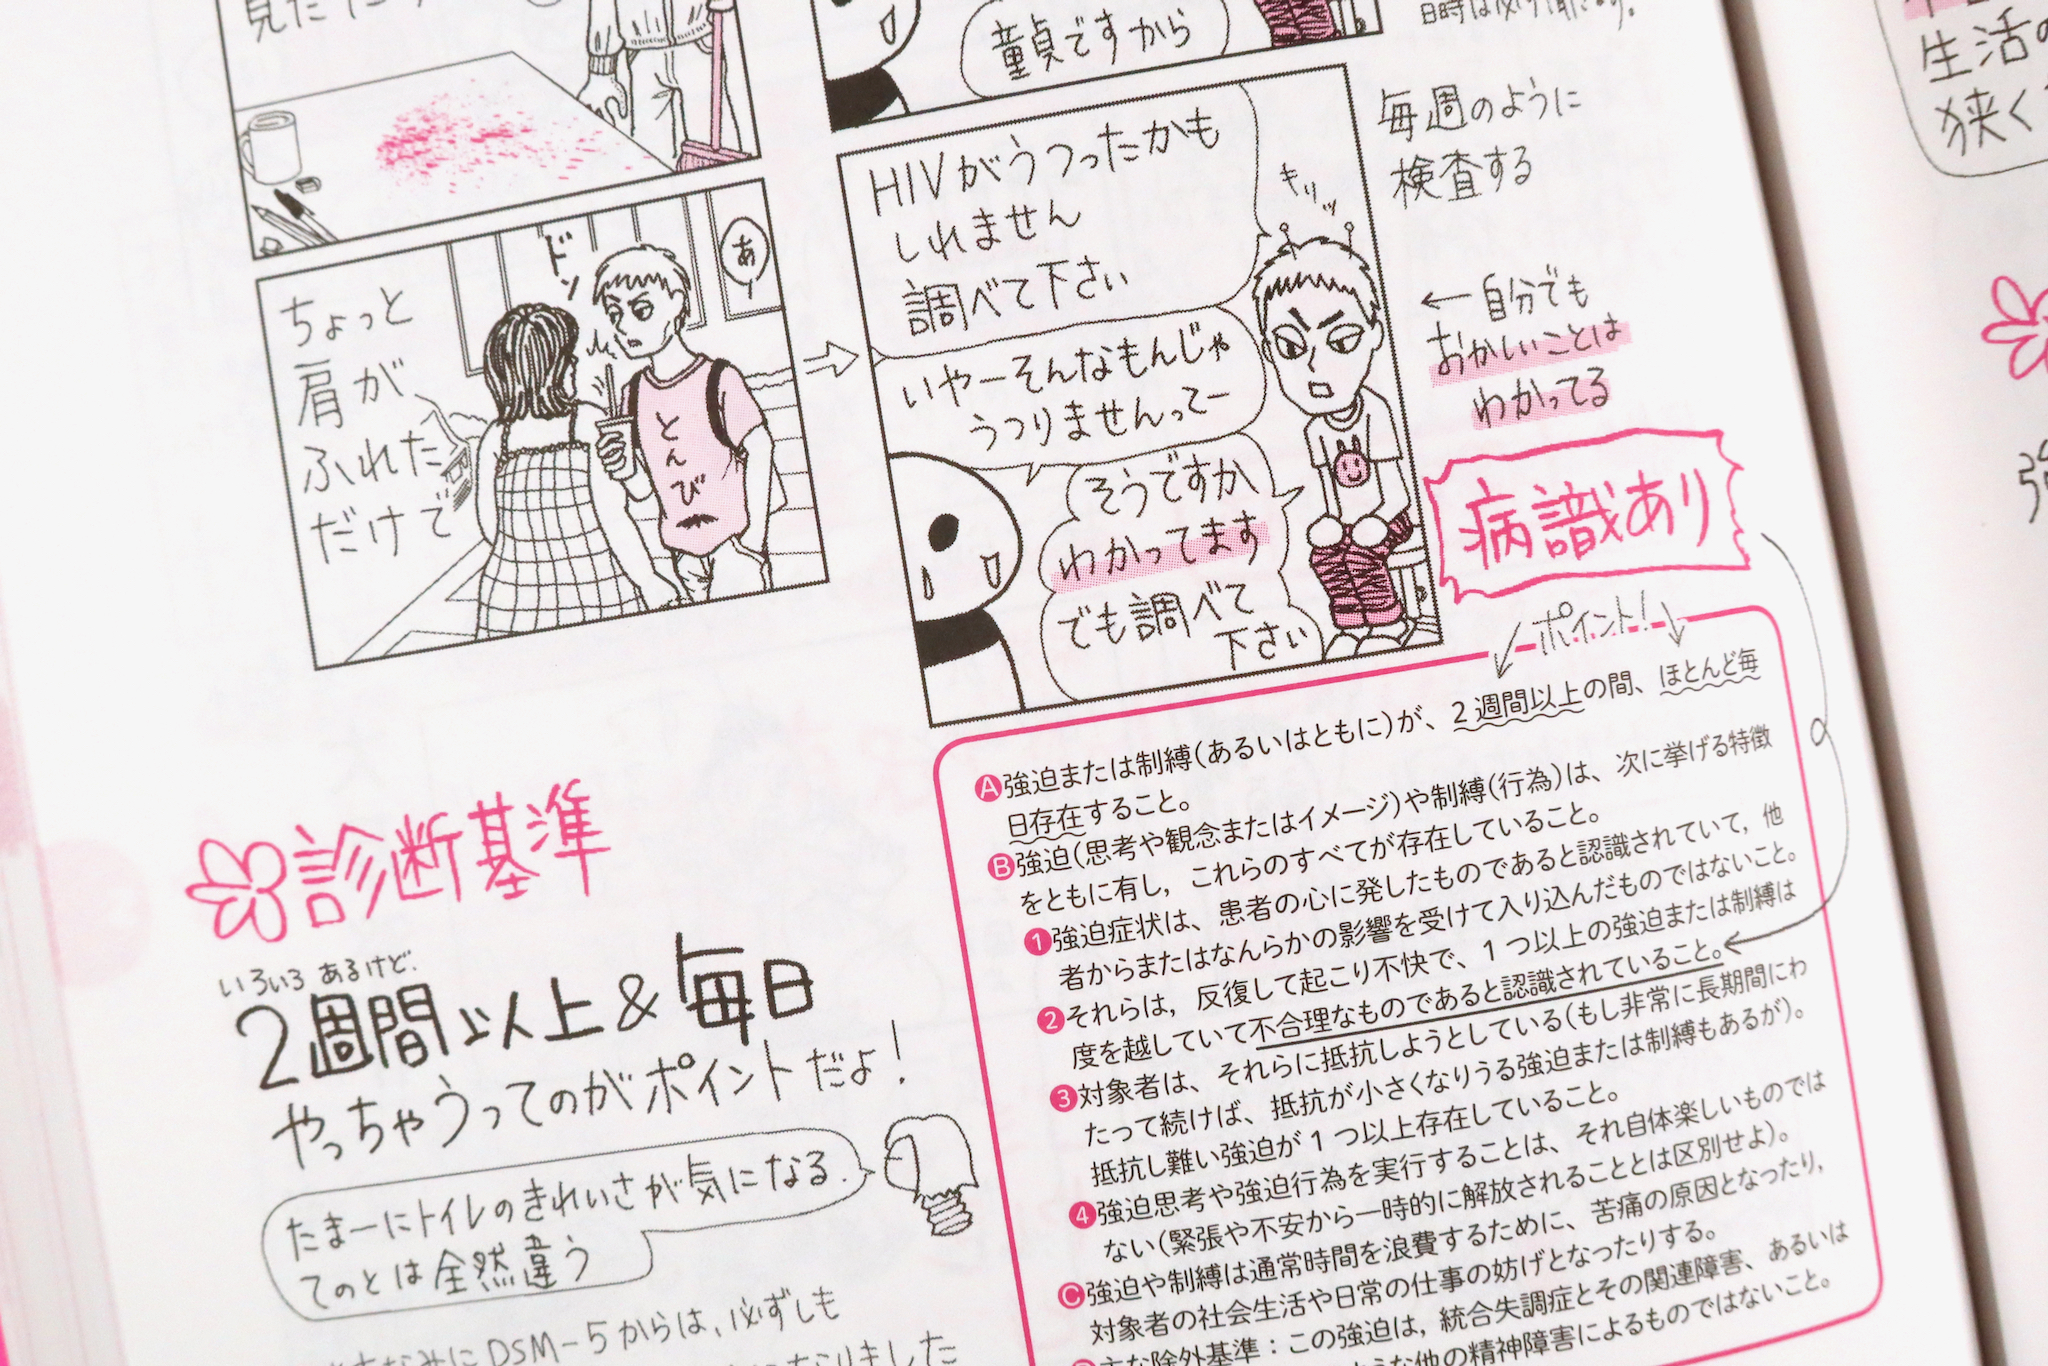 童貞ですから
あ
ドン
ちょっと
肩が
ふれた
だけで
とんび
HIVがうつったかも
しれません
調べて下さい
キリッ
いやーそんなもんじゃ
うつりませんってー
そうですか
わかってます
でも調べて
下さい
毎週のように
検査する
←自分でも
おかしいことは
わかってる
病識あり
ポイント!
診断基準
いろいろあるけど.
2週間以上&毎日
やっちゃうってのがポイントだよ!
たまーにトイレのきれいさが気になる.
てのとは全然違う
DSM-5からは、必ずしも
なりました
A強迫または制縛(あるいはともに)が、2週間以上の間、ほとんど毎
日存在すること。
B強迫(思考や観念またはイメージ)や制縛(行為)は、次に挙げる特徴
をともに有し，これらのすべてが存在していること。
1強迫症状は、患者の心に発したものであると認識されていて，他
者からまたはなんらかの影響を受けて入り込んだものではないこと。
2それらは，反復して起こり不快で、1つ以上の強迫または制縛は
度を越していて不合理なものであると認識されていること。
3対象者は、それらに抵抗しようとしている(もし非常に長期間にわ
たって続けば、抵抗が小さくなりうる強迫または制縛もあるが)。
抵抗し難い強迫が1つ以上存在していること。
4強迫思考や強迫行為を実行することは、それ自体楽しいものでは
ない(緊張や不安から一時的に解放されることとは区別せよ)。
C強迫や制縛は通常時間を浪費するために、苦痛の原因となったり，
対象者の社会生活や日常の仕事の妨げとなったりする。
主な除外基準：この強迫は，統合失調症とその関連障害、あるいは
な他の精神障害によるものではないこと。
生活の
狭く
強